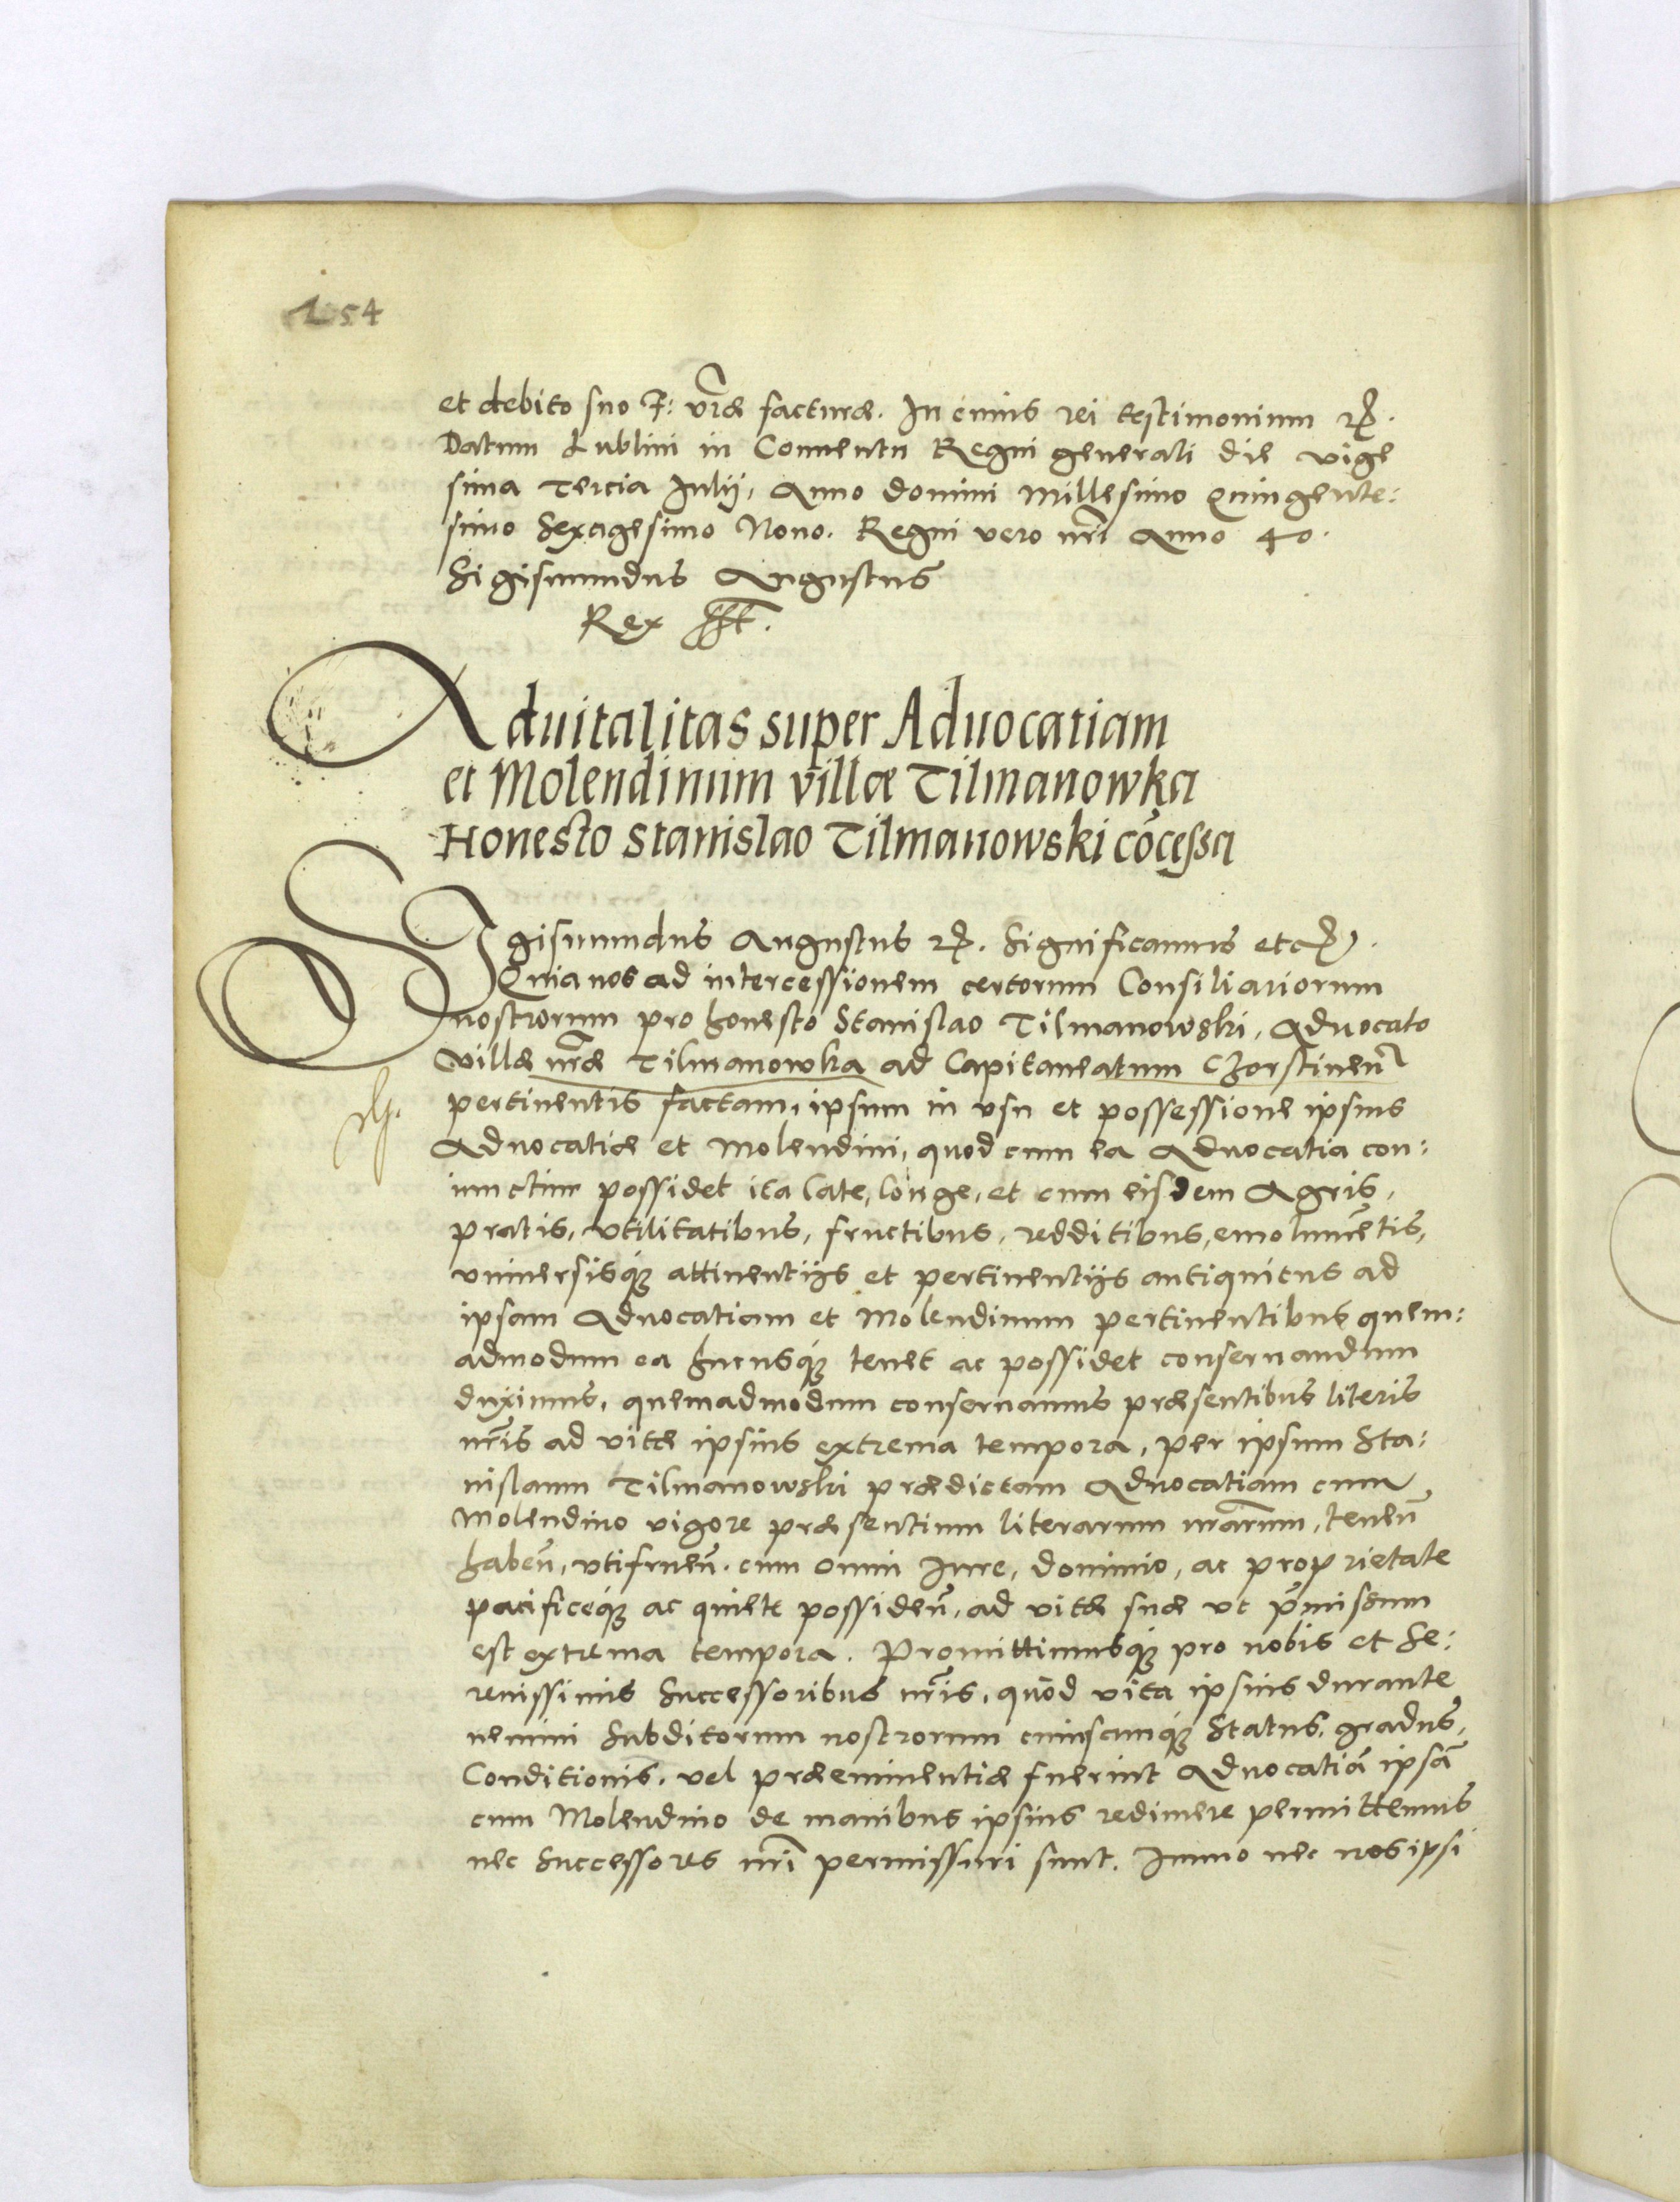 154
et debito suo F: vr̃æ facturæ. In cuius rei testimonium
Datum Lublini in Conuentu Regni generali die vige
sima Tercia Iulij, Anno domini Millesimo Quingente:
simo Sexagesimo Nono. Regni vero nr̃i Anno 40.
Sigismundus Augustus
Rex
Aduitalitas super Aduocatiam
et Molendinum villæ Tilmanowka
Honesto Stanislao Tilmanowski cõcessa
Sigismundus Augustus Significamus etc.
Quia nos ad intercessionem certorum Consiliariorum
nostrorum pro honesto Stanislao Tilmanowski, Aduocato
Villæ nr̃æ Tilmanowka ad Capitaneatum Chorstineñ
pertinentis factam, ipsum in vsu et possessione ipsius
Aduocatiæ et Molendini, quod cum ea Aduocatia con:
iunctim possidet ita late, longe, et cum eisdem Agris,
pratis, vtilitatibus, fructibus, redditibus, emolumẽtis,
vniuersisq́ue attinentijs et pertinentijs antiquitus ad
ipsam Aduocatiam et Molendinum pertinentibus quem:
admodum ea hucusq́ue tenet ac possidet conseruandum
duximus, quemadmodum conseruamus præsentibus literis
nr̃is ad vitæ ipsius extrema tempora, per ipsum Sta:
nislaum Tilmanowski prædictam Aduocatiam cum
Molendino vigore præsentium literarum nr̃arum, teneñ
habeñ, vtifrueñ. cum omni Iure, dominio, ac proprietate
pacificeq́ue ac quiete possideñ, ad vitæ suæ vt p̃missum
est extrema tempora. Promittimusq́ue pro nobis et Se:
renissimis Successoribus nr̃is, quod vita ipsius durante
nemini Subditorum nostrorum cuiuscunq́ue Status, gradus,
Conditionis, vel præeminentiæ fuerint Aduocatiã ipsã
cum Molendino de manibus ipsius redimere permittemus
nec Successores nr̃i permissuri sunt. Immo nec nos ipsi